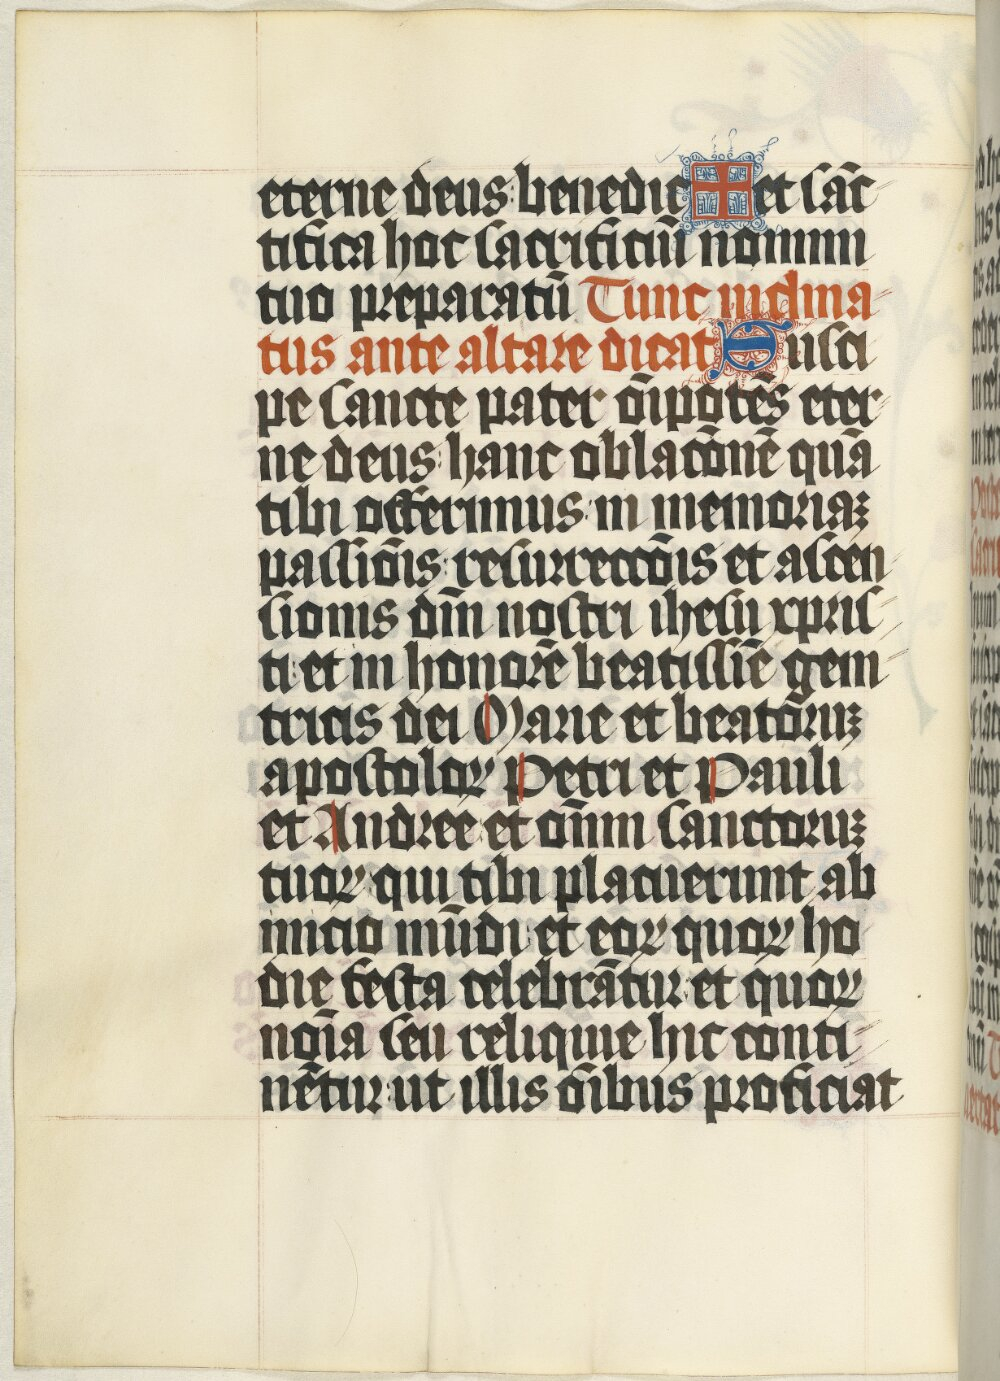 eterne deus benedic ✠ et sāc
tifica hoc sacrificiū nomini
tuo preparatū Tunc inclina
tus ante altare dicat Susci
pe sancte pater oīpotēs eter
ne deus hanc oblacōnē quā
tibi offerimus in memoriaꝫ
passiōis resurreccōis et ascen
sionis dn̄i nostri ihesu xpris
ti et in honorē beatissīe geni
tricis dei Marie et beatōruꝫ
apostoloꝝ Petri et Pauli
et Andree et oīm sanctoruꝫ
tuoꝝ qui tibi placuerunt ab
inicio mūdi et eoꝝ quoꝝ ho
die festa celebrātur et quoꝝ
noīa seu reliquie hic conti
nētur ut illis oībus proficiat